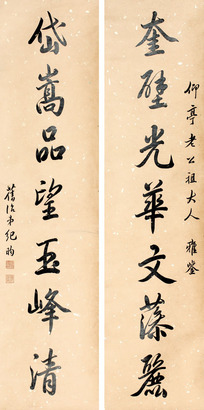 仰亭老公祖大人 雅鉴
奎壁光華文藻麗
岱嵩品望玉峰清
舊治弟紀昀